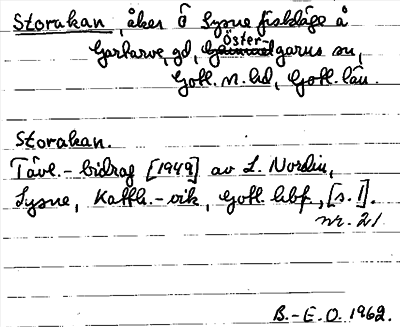 Storakan, åker Ö Sysne fiskläge å
Garkarve, gd, Östergarns sn,
Gotl. n. hd, Gotl. län.
Storakan.
Tävl.-bidrag [1949] av L. Nordin,
Sysne, Katth.-vik, Gotl. hbf, [s. 1].
nr. 21
B.-E. O. 1962.